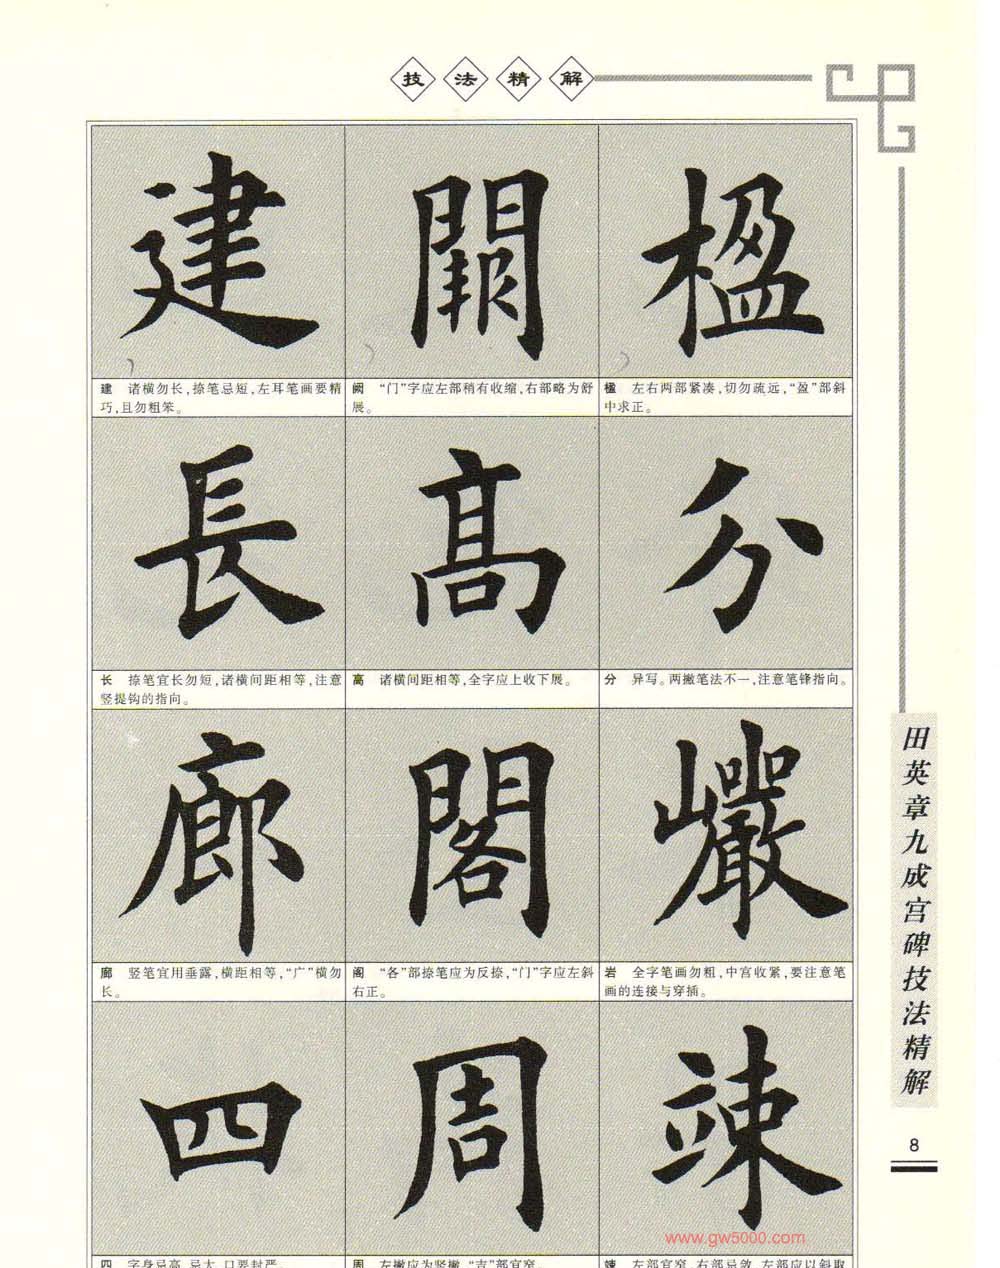 技法精解
建
闕
楹
建 诸横勿长,捺笔忌短,左耳笔画要精
巧,且勿粗笨。
阙 “门”字应左部稍有收缩,右部略为舒
展。
楹 左右两部紧凑,切勿疏远,“盈”部斜
中求正。
長
高
分
长 捺笔宜长勿短,诸横间距相等,注意
竖提钩的指向。
高 诸横间距相等,全字应上收下展。
分 异写。两撇笔法不一,注意笔锋指向。
廊
閣
巖
廊 竖笔宜用垂露,横距相等,“广”横勿
长。
阁 “各”部捺笔应为反捺,“门”字应左斜
右正。
岩 全字笔画勿粗,中宫收紧,要注意笔
画的连接与穿插。
四
周
竦
四 字身忌高、忌大,口要封严。
周 左撇应为竖撇,“吉”部宜窄。
竦 左部宜窄,右部忌敛,左部应以斜取
田英章九成宫碑技法精解
8
www.gw5000.com